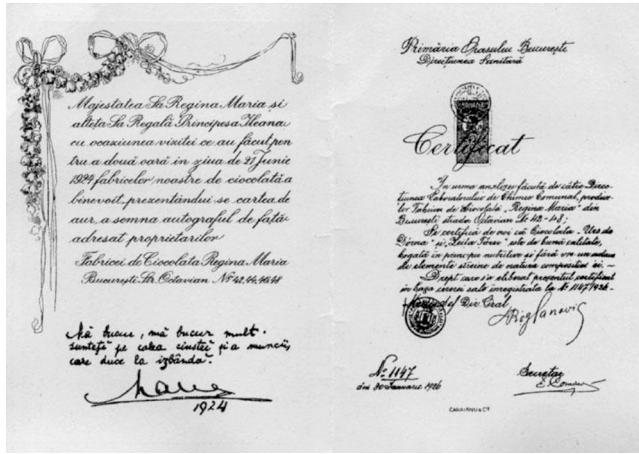 Majestatea Sa Regina Maria și
alteța Sa Regală Principesa Ileana
cu ocaziunea vizitei ce au făcut pen
tru a două oară in ziua de 27 Junie
1924 fabricelor noastre de ciocolată a
binevoit, prezentându se cartea de
aur, a semna autograful de față
adresat proprietarilor
Fabricei de Ciocolata Regina Maria
București Str. Octavian No 42,44,46,48
Mă bucur, mă bucur mult.
sunteți pe calea cinstei și a muncii,
care duce la izbândă.
Maria
1924
Primăria Orașului București
Direcțiunea Sanitară
Certificat
In urma analizei făcută de către Direc
țiunea Laboratorului de Chimie Comunal, produse
lor Fabricei de Ciocolată "Regina Maria" din
București strada Octavian No 42-48;
Se certifică de noi că Ciocolata
Dorna" și este de bună calitate,
bogată in principii nutritive și fără
de elemente străine de natura compoziției ei.
Drept care s'a eliberat prezentul certificat
in baza cererei sale inregistrata la No 1147/926.
Dir. Gral.
No 1147
din 30 Ianuarie 1926
Secretar